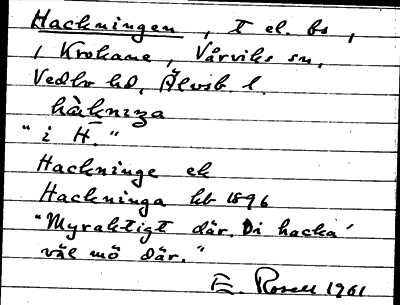 Hackningen, T el. bs,
i Krokane, Vårviks sn,
Vedbo hd, Älvsb. l.
hàkniŋa
"i H."
Hackninge ek
Hackninga kb 1896
"Myraktigt där. Di hacka'
väl mö där."
E. Rosell 1961